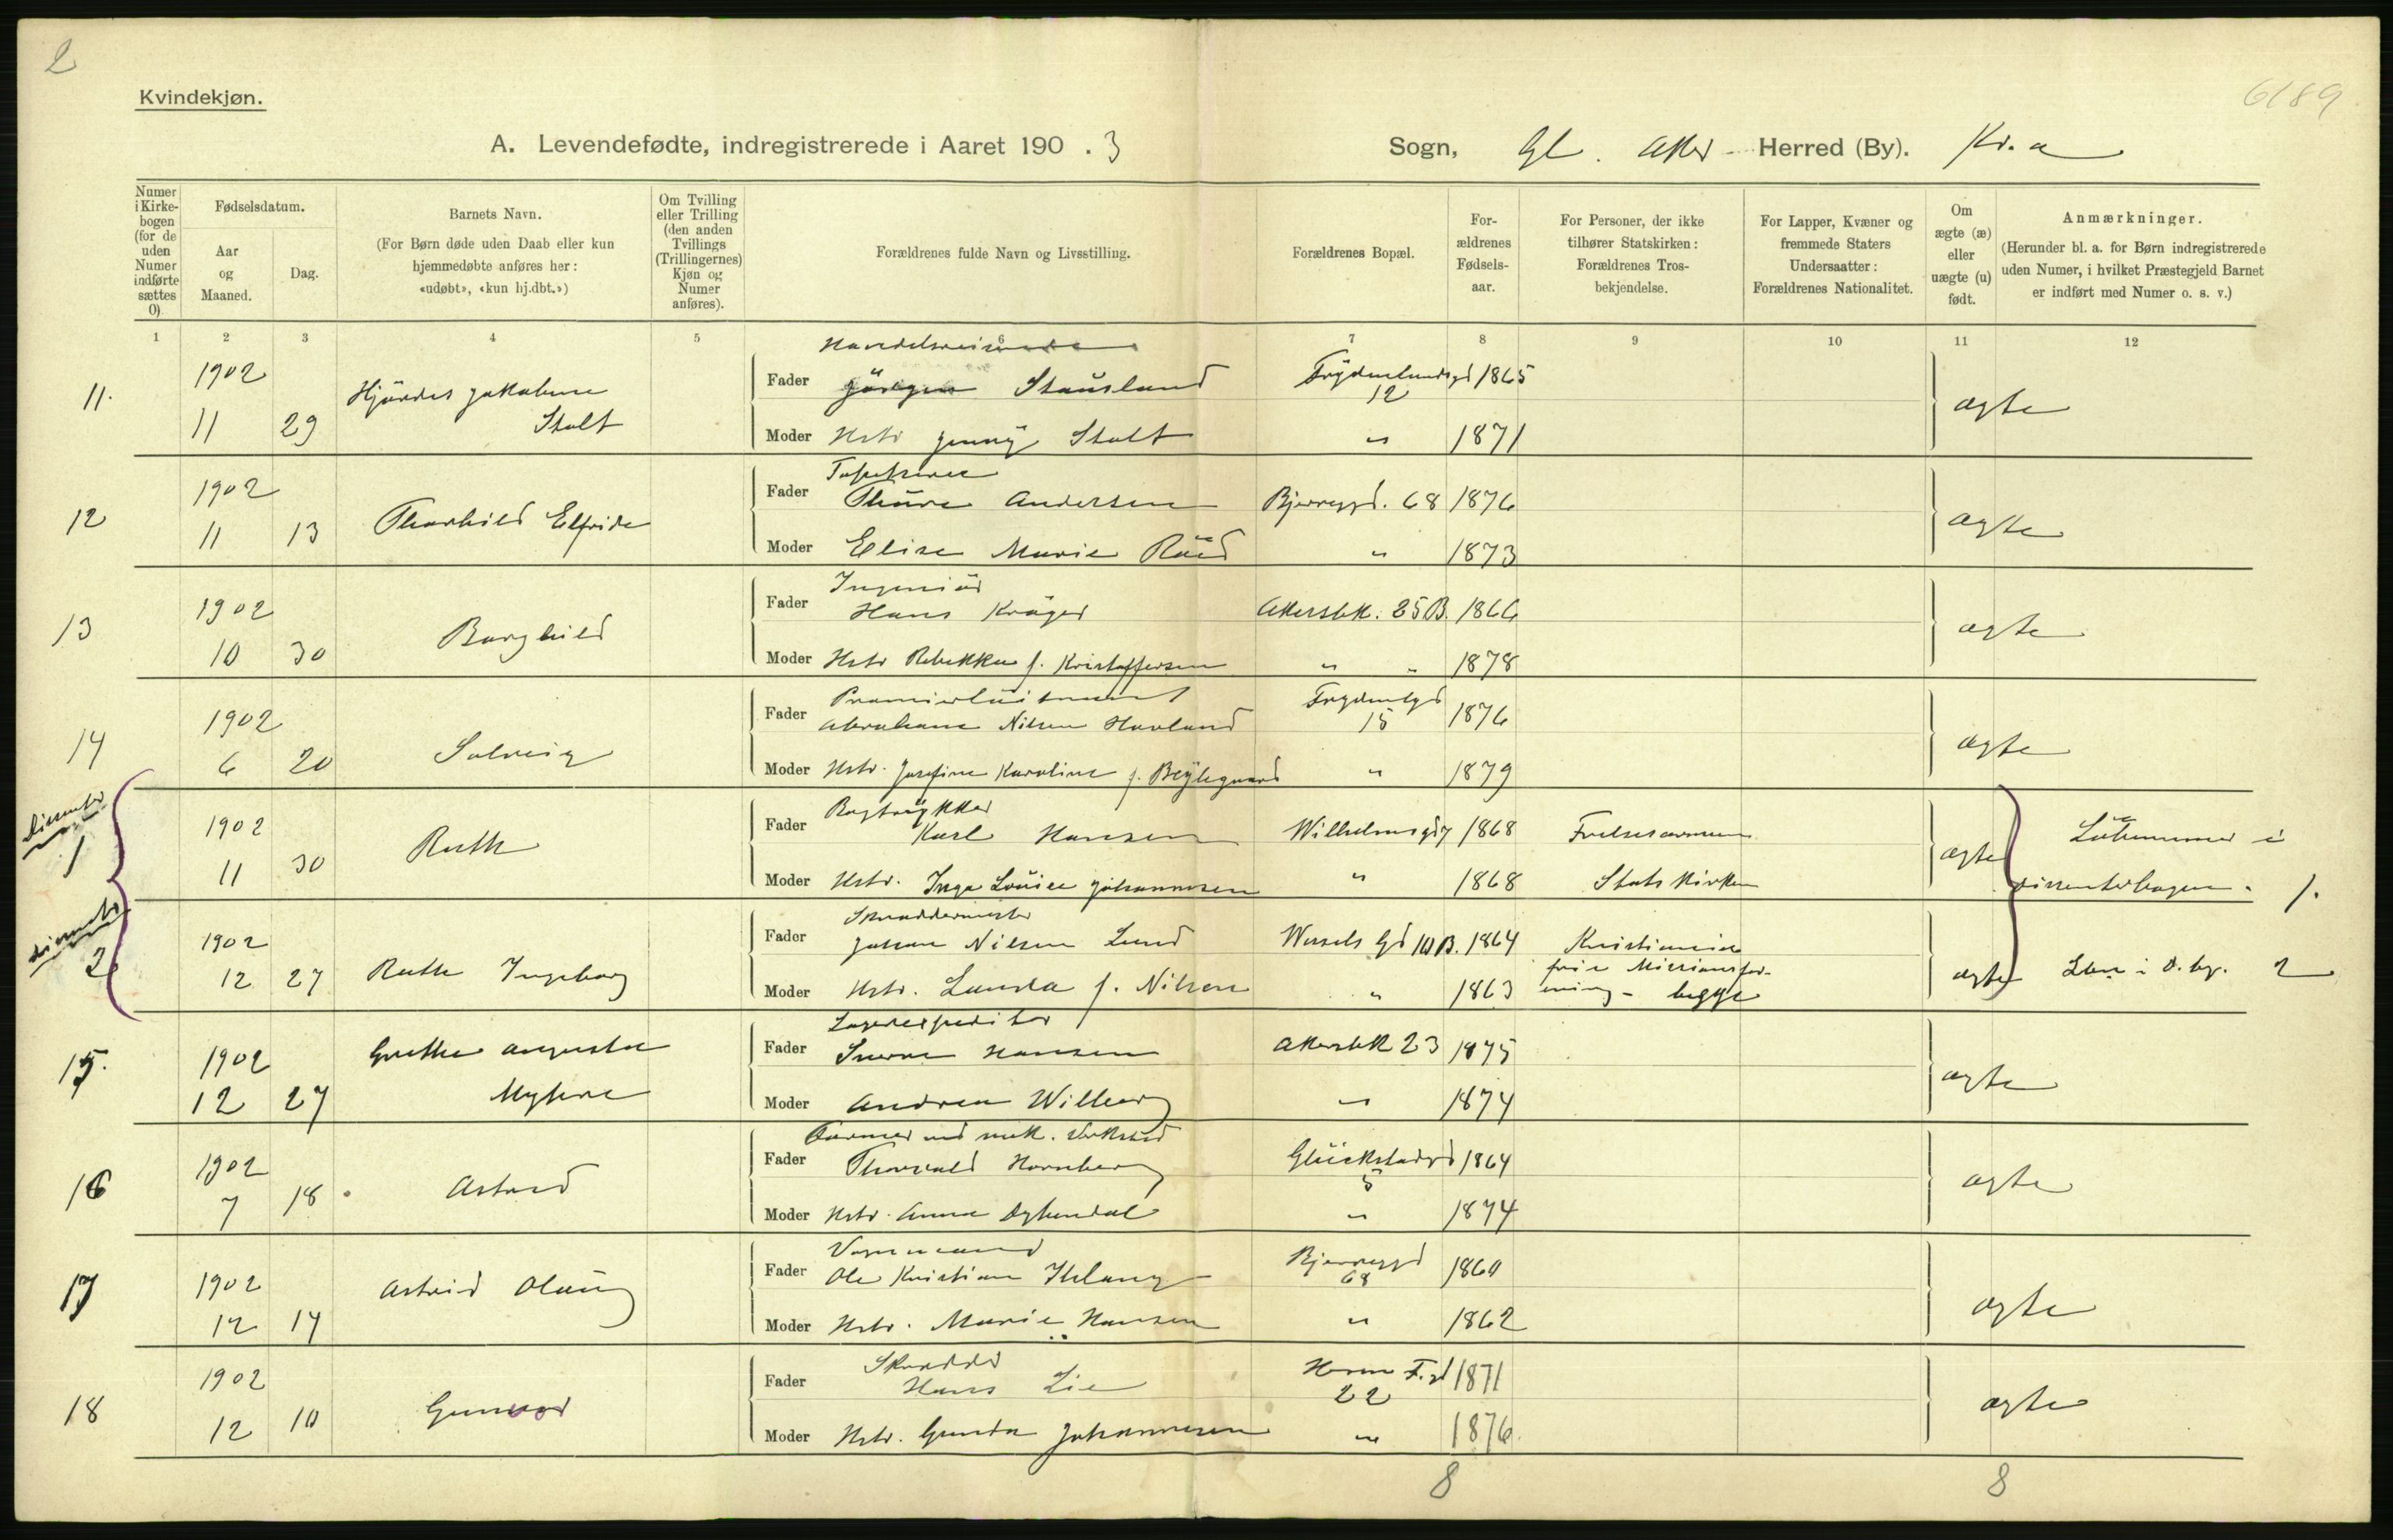 2
6189
Kvindekjøn.
A. Levendefødte, indregistrerede i Aaret 190 . 3
Sogn, Gl. Aker Herred (By). Kr.a
Numer i Kirke-bogen (for de uden Numer indførte sættes 0)
Fødselsdatum.
Aar og Maaned.
Dag.
Barnets Navn.
(For Børn døde uden Daab eller kun
hjemmedøbte anføres her:
«udøbt», «kun hj.dbt.»)
Om Tvilling
eller Trilling
(den anden
Tvillings
(Trillingernes)
Kjøn og
Numer
anføres).
Forældrenes fulde Navn og Livsstilling.
Forældrenes Bopæl.
For-
ældrenes
Fødsels-
aar.
For Personer, der ikke
tilhører Statskirken:
Forældrenes Tros-
bekjendelse.
For Lapper, Kvæner og
fremmede Staters
Undersaatter:
Forældrenes Nationalitet.
Om
ægte (æ)
eller
uægte (u)
født.
Anmærkninger.
(Herunder bl. a. for Børn indregistrerede
uden Numer, i hvilket Præstegjeld Barnet
er indført med Numer o. s. v.)
1 2 3 4 5 6 7 8 9 10 11 12
Handelsreisende
11. 1902 Hjördis Jakobine Fader Jörgen Stausland 1865
12
11 29 Stolt Moder Hstr Jenny Stolt " 1871 ægte
Tapetserer
12 1902 Fader Thure Andersen Bjerregd. 68 1876
11 13 Thorhild Elfride Moder Elise Marie Röed " 1873 ægte
Ingeniör
13 1902 Fader Hans Kröger Akersbk. 25B. 1866
10 30 Borghild Moder Hstr Rebekka f. Kristoffersen " " 1878 ægte
Premierløitnant
14 1902 Fader Abraham Nilsen Havland 15 1876
6 20 Solveig Moder Hstr. Josefine Karoline f. Beylegaard " 1879 ægte
Bogtrykker
Dissenter 1902 Fader Karl Hansen Wilhelmsgd 7 1868 Frelsesarmeen
1 11 30 Ruth Moder Hstr. Inga Louise Johannesen " 1868 Statskirken ægte
Löbenummer i
dissenterbogen. 1.
Skræddermester
Dissenter 1902 Fader Johan Nilsen Lund Wessels Gd 10B. 1864 Kristiania
2 12 27 Ruth Ingeborg Moder Hstr. f. Nilsen " 1863 frie Missionsfor-
ening - begge ægte Lbn i D. bg. 2
Lagerexpeditør
15. 1902 Grethe Augusta Fader Sverre Hansen Akersbk 23 1875
12 27 Myhre Moder Andrea Wilberg " 1874 ægte
Former ved mek. Verksted
16 1902 Fader Thorvald Hornberg Glückstadgd 1864
5
7 18 Astrid Moder Hstr. Anna " 1874 ægte
Vognmand
17 1902 Astrid Olaug Fader Ole Kristian Bjerregd 68
12 14 Moder Hstr. Marie Hansen " 1862 ægte
Skrædder
18 1902 Fader Hans Lie 1871
22
12 10 Gunvor Moder Hstr. Gunda Johannesen " 1876 ægte
8 8